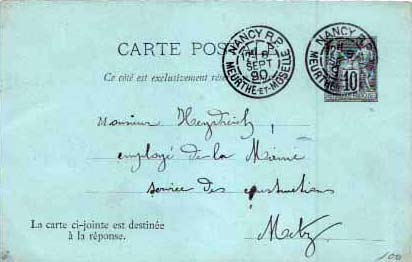 CARTE POS
Ce côté est exclusivement rése
NANCY R.P.
SEPT
90
MEURTHE-ET-MOSELLE
NANCY R.P.
MEURTHE
10
Monsieur
employé de la Mairie
service des constructions
Metz
La carte ci-jointe est destinée
à la réponse.
100